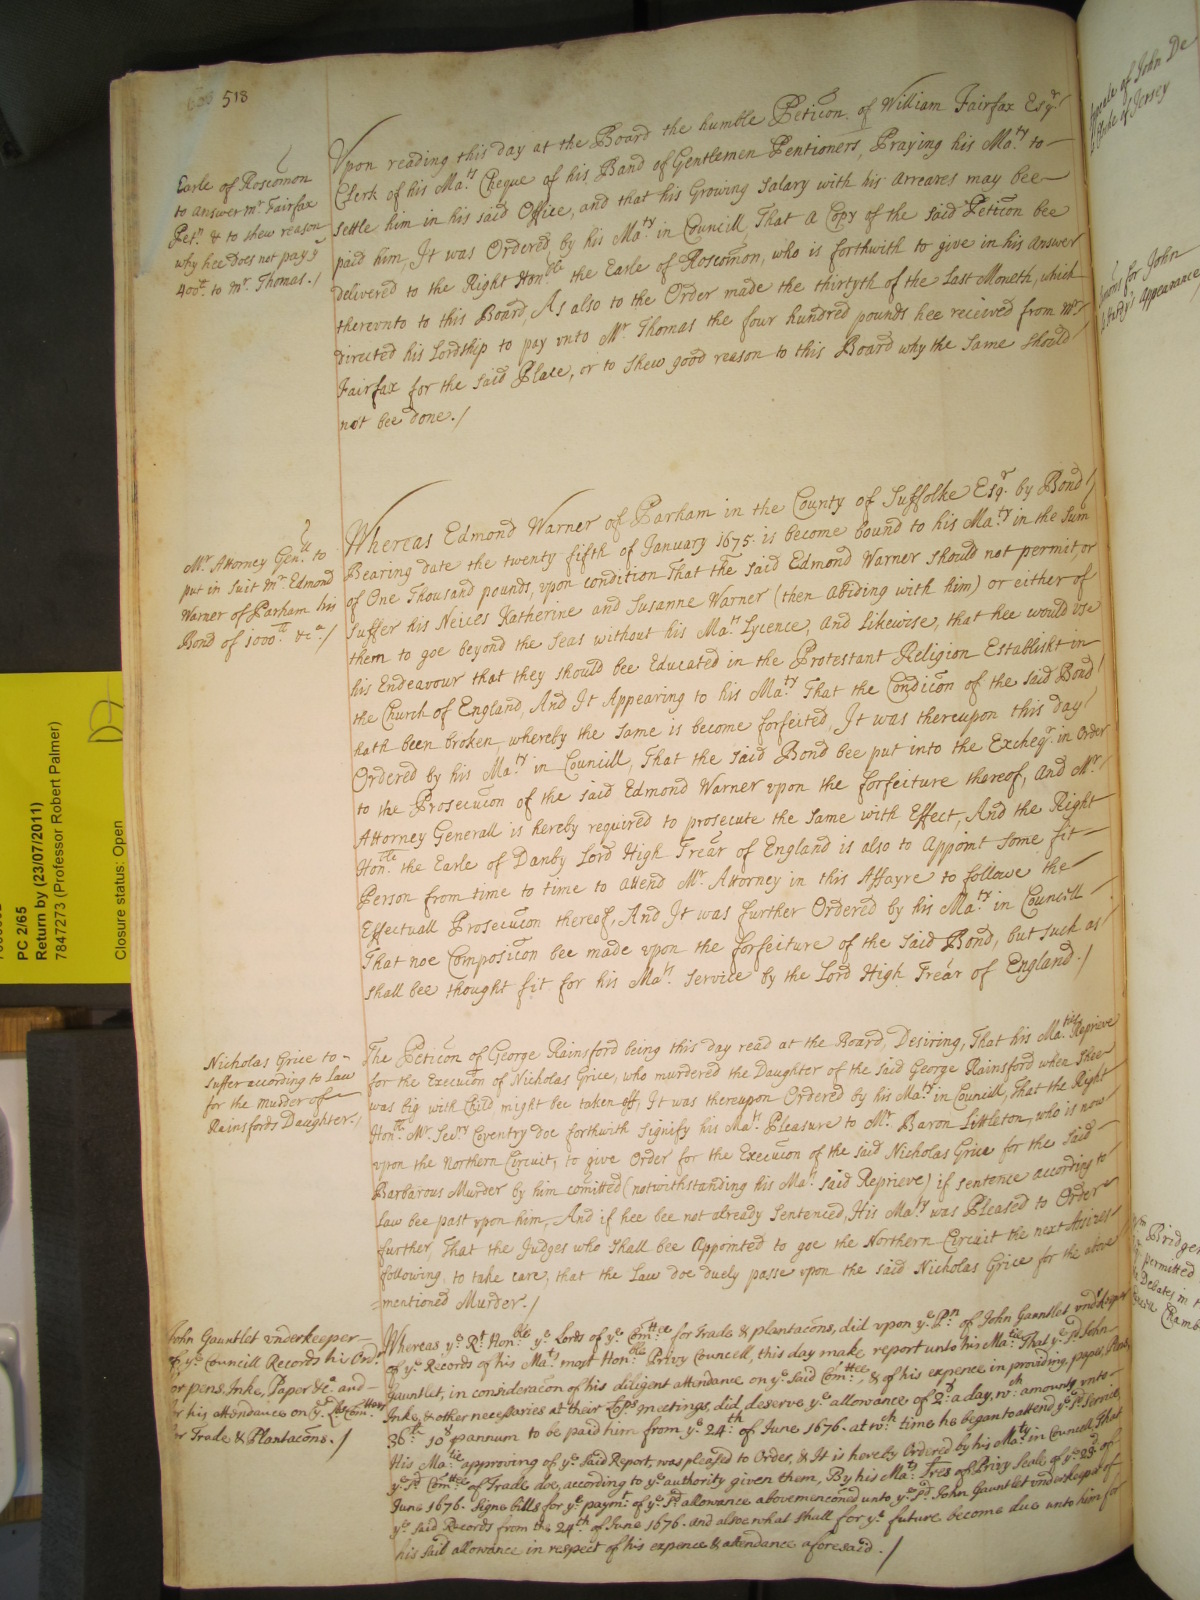 518
Earle of Roscom̃on
to answer mr. Fairfax
Petn. & to shew reason
why hee does not pay
400li. to mr. Thomas./
Vpon reading this day at the Board the humble Petic̃on of William Fairfax Esqr.
Clerk of his Mats. Cheque of his Band of Gentlemen Pentioners, Praying his Maty. to
settle him in his said Office, and that his Growing Salary with his Arreares may bee
paid him, It was Ordered by his Maty. in Councill, That a Copy of the said Petic̃on bee
delivered to the Right Honble. the Earle of Roscom̃on, who is forthwith to give in his Answer
therevnto to this Board, As also to the Order made the thirtyth of the Last Moneth, which
directed his Lordship to pay vnto Mr. Thomas the four hundred pounds hee received from Mr.
Fairfax for the said Place, or to shew good reason to this Board why the same should
not bee done./
Mr. Attorney Genll. to
put in suit Mr. Edmond
Warner of Parham his
Bond of 1000li. &ca./
Whereas Edmond Warner of Parham in the County of Suffolke Esqr. by Bond
Bearing date the twenty fifth of January 1675. is become bound to his Maty. in the sum
of One Thousand pounds, vpon condition That the said Edmond Warner should not permit, or
suffer his Neices Katherine and Susanne Warner (then abiding with him) or either of
them to goe beyond the Seas without his Mats. Lycence, and Likewise, that hee would vse
his Endeavour that they should bee Educated in the Protestant Religion Establisht in
the Church of England, And It Appearing to his Maty. That the Condic̃on of the said Bond
hath been broken, whereby the same is become forfeited, It was thereupon this day
Ordered by his Maty. in Councill, That the said Bond bee put into the Excheqr. in Order
to the Prosecuc̃on of the said Edmond Warner vpon the forfeiture thereof, and Mr.
Attorney Generall is hereby required to prosecute the same with Effect, And the Right
Honble. the Earle of Danby Lord High Trear̃ of England is also to Appoint some fit
Person from time to time to attend Mr. Attorney in this Affayre to followe the
Effectuall Prosecuc̃on thereof, And It was further Ordered by his Maty. in Councill
That noe Composic̃on bee made vpon the forfeiture of the said Bond, but such as
shall bee thought fit for his Mats. Service by the Lord High Trear̃ of England./
Nicholas Grice to
suffer according to Law
for the Murder of
Rainsfords Daughter./
The Petic̃on of George Rainsford being this day read at the Board, Desiring, That his Maties. Reprieve
for the Execuc̃on of Nicholas Grice, who murdered the Daughter of the said George Rainsford when shee
was big with Child might bee taken off, It was thereupon Ordered by his Maty. in Councill, That the Right
Honble. Mr. Secry. Coventry doe forthwith signify his Mats. Pleasure to Mr. Baron Littleton, who is now
vpon the Northern Circuit, to give Order for the Execuc̃on of the said Nicholas Grice for the said
Barbarous Murder by him com̃itted (notwithstanding his Mats. said Reprieve) if sentence according to
Law bee past vpon him, And if hee bee not already Sentenced, His Maty. was Pleased to Order
further, That the Judges who shall bee Appointed to goe the Northern Circuit the next Assizes
following, to take care, that the Law doe duely passe vpon the said Nicholas Grice for the above
=mentioned Murder./
John Gauntlet vnderkeeper
of ye. Councill Records his Ordr.
for pens, Inke, Paper &ca. and
for his attendance on ye. Com̃ttee
for Trade & Plantac̃ons./
Whereas ye. Rt. Honble. ye. Lords of ye. Com̃ttee for Trade & plantac̃ons, did vpon ye. Pn. of John Gauntlet vnderkeeper
of ye. Records of his Mats. most Honble. Privy Councell, this day make report unto his Matie. That ye. sd. John
Gauntlet, in considerac̃on of his diligent attendance on ye. said Com̃ttee, & of his expence in providing, paper, Pens,
Inke, & other necessaries at their Lps. meetings, did deserve ye. allowance of 2s. a day, wch. amounts vnto
36li. 10s. p annum to be paid him from ye. 24th. of June 1676. at wch. time he began to attend ye. sd. service,
His Matie. approving of ye. said Report, was pleased to Order, & It is hereby Ordered by his Maty. in Councell, That
ye. sd. Com̃ttee of Trade doe, according to ye. authority given them, By his Mats. Lr̃es of Privy Seale of ye. 29d. of
June 1676. Signe bills for ye. paymt. of ye. sd. allowance abovemenc̃oned unto ye. sd. John Gauntlet vnderkeeper of
ye. said Records from the 24th. of June 1676. and alsoe what shall for ye. future become due unto him for
his said allowance in respect of his expence & attendance aforesaid./
PC 2/65
Return by (23/07/2011)
7847273 (Professor Robert Palmer)
Closure status: Open
D7
of John De
of Jersey
for John
Appearance
Bridge
permitted
Debates in
Chamb